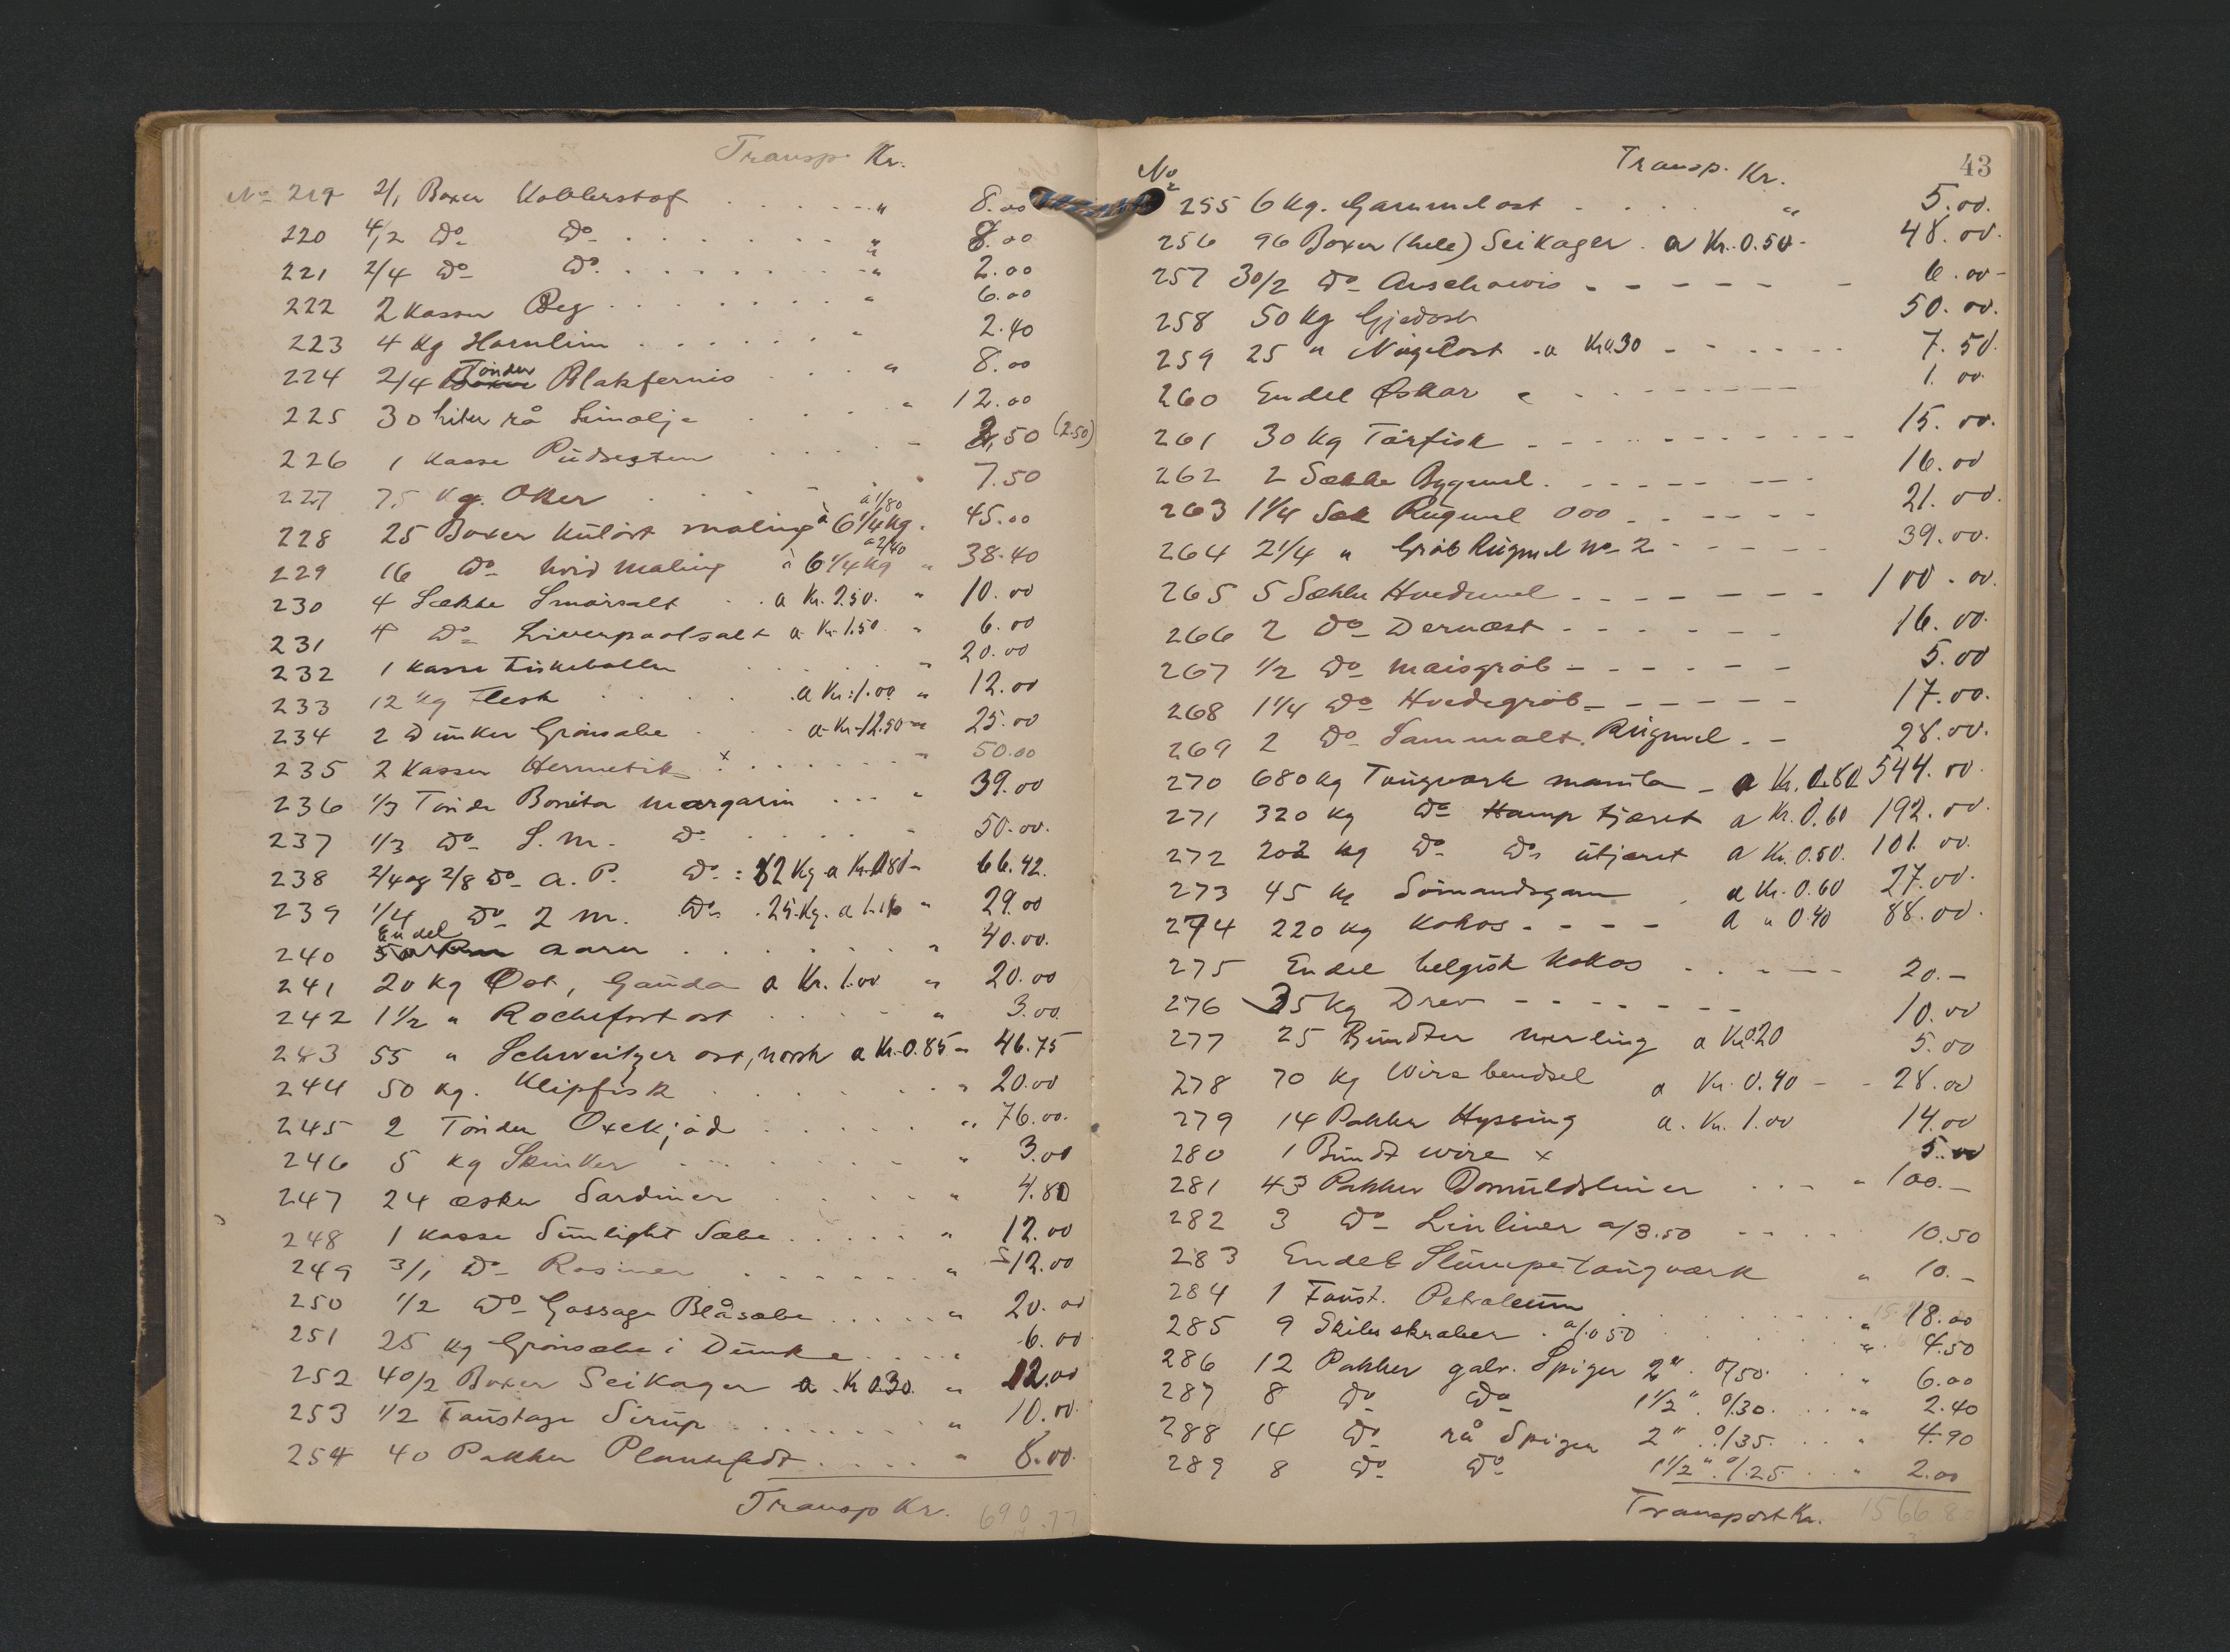 Transp. Kr.
No 219 2/1 Boxer Kobberstof . . . . . . " 8.00
220 4/2 Do Do . . . . . . . " 8.00
221 2/4 Do Do . . . . . . . " 2.00
222 2 Kasser Beg . . . . . . . " 6.00
223 4 Kg Hornlim . . . . . . " 2.40
224 2/4 Tönder Blakfernis . . . " 8.00
225 30 Liter rå Linolje . . . . " 12.00
226 1 Kasse Pudsesten . . . . . " 2,50 (2.50)
227 75 Kg. Oker . . . . . " 7.50
228 25 Boxer Kulört maling à 6 1/4 Kg. a 1/80 45.00
229 16 Do hvid Maling à 6 1/4 Kg a 2/40 " 38.40
230 4 Sække Smörsalt . . a Kr. 2.50. " 10.00
231 4 Do Liverpoolsalt a Kr. 1.50 " 6.00
232 1 Kasse Fiskeboller . . . . . " 20.00
233 12 Kg Flesk . . . . . a Kr: 1.00 " 12.00
234 2 Dunker Grönsabe . . . a Kr. 12.50 " 25.00
235 2 Kasser Hermetik x . . . . . . . " 50.00
236 1/3 Tönde Bonita margarin . . . " 39.00
237 1/3 Do S. M. Do . . . . . " 50.00.
238 2/4 og 2/8 Do A. P. Do : 82 Kg a Kr. 0.81 66.42.
239 1/4 Do 2 M. Do . 25 Kg. a 1.16 " 29.00
240 Endel Aarer . . . . . . . " 40.00.
241 20 Kg Ost, Gauda a Kr. 1.00 " 20.00
242 1 1/2 " Rochefort ost . . . . . " 3.00
243 55 " Schweitzer ost, norsk a Kr. 0.85 " 46.75
244 50 Kg. Klipfisk . . . . . . " 20.00
245 2 Tönder Oxekjöd . . . . . " 76.00.
246 5 Kg Skinker . . . . . . " 3.00
247 24 æsker Sardiner . . . . . " 4.80
248 1 Kasse Sunlight Sæbe . . . . . " 12.00
249 3/1 Do Rosiner . . . . . . . " 12.00
250 1/2 Do Gossage Blåsæbe . . . . . " 20.00
251 25 Kg Grönsæbe i Dunke . . . . " 6.00
252 40/2 Boxer Seikager a Kr 0.30. " 12.00
253 1/2 Faustage Sirup . . . . . . . " 10.00.
254 40 Pakker Plantefedt . . . . . " 8.00.
Transp Kr. 690.77
43
No Transp. Kr.
255 6 Kg. Gammelost . . . . " 5.00.
256 96 Boxer (hele) Seikager . a Kr. 0.50 - 48.00.
257 30/2 Do Anschowis - - - - - - 6.00 -
258 50 Kg Gjedost 50.00.
259 25 " Nögelost - a Kr 0.30 - - - - - 7.50.
260 Endel Öskar " - - - - - - - 1.00.
261 30 Kg Törfisk - - - - - - - - - - - 15.00.
262 2 Sække Bygmel . - - - - - - - 16.00
263 1 1/4 Sæk Rugmel 000 - - - - - - 21.00.
264 2 1/4 " Gröb Rugmel No 2 - - - - - 39.00.
265 5 Sække Hvedemel - - - - - - - 100.00.
266 2 Do Dernæst - - - - - - 16.00.
267 1/2 Do Maisgröb - - - - - - 5.00
268 1 1/4 Do Hvedegröb - - - - - - 17.00.
269 2 Do Sammalt. Rugmel . - 28.00.
270 680 Kg Tougværk manila - a Kr. 0.80 544.00.
271 320 Kg Do Hamp tjæret a Kr. 0.60 192.00.
272 202 Kg Do Do utjæret a Kr. 0.50. 101.00.
273 45 Kg Sömandsgarn . a Kr. 0.60 27.00.
274 220 Kg Kokos - - - - a " 0.40 88.00.
275 Endel belgisk Kokos - - - - - - 20.-
276 35 Kg Drev - - - - - - - 10.00
277 25 Bundter Merling a Kr 0.20 5.00
278 70 Kg Wire bendsel a Kr. 0.40 - - 28.00
279 14 Pakker Hyssing a. Kr. 1.00 14.00
280 1 Bundt wire x 5.00
281 43 Pakker Bomuldsliner . . . " 100.-
282 3 Do Linliner a/3.50 . . . . 10.50
283 Endel Stumpe tougværk " 10.-
284 1 Faust. Petroleum . . . . . . " 18.00
285 9 Skibsskraber . a/0.50 . . . . . " 4.50
286 12 Pakker galv. Spiger 2" . 0/50. . . . " 6.00
287 8 Do Do 1 1/2" . 0/30. . . . " 2.40
288 14 Do rå Spiger 2" . 0/35. . . . " 4.90
289 8 Do Do 1 1/2" . 0/25. . . " 2.00
Transport Kr. 1566.80